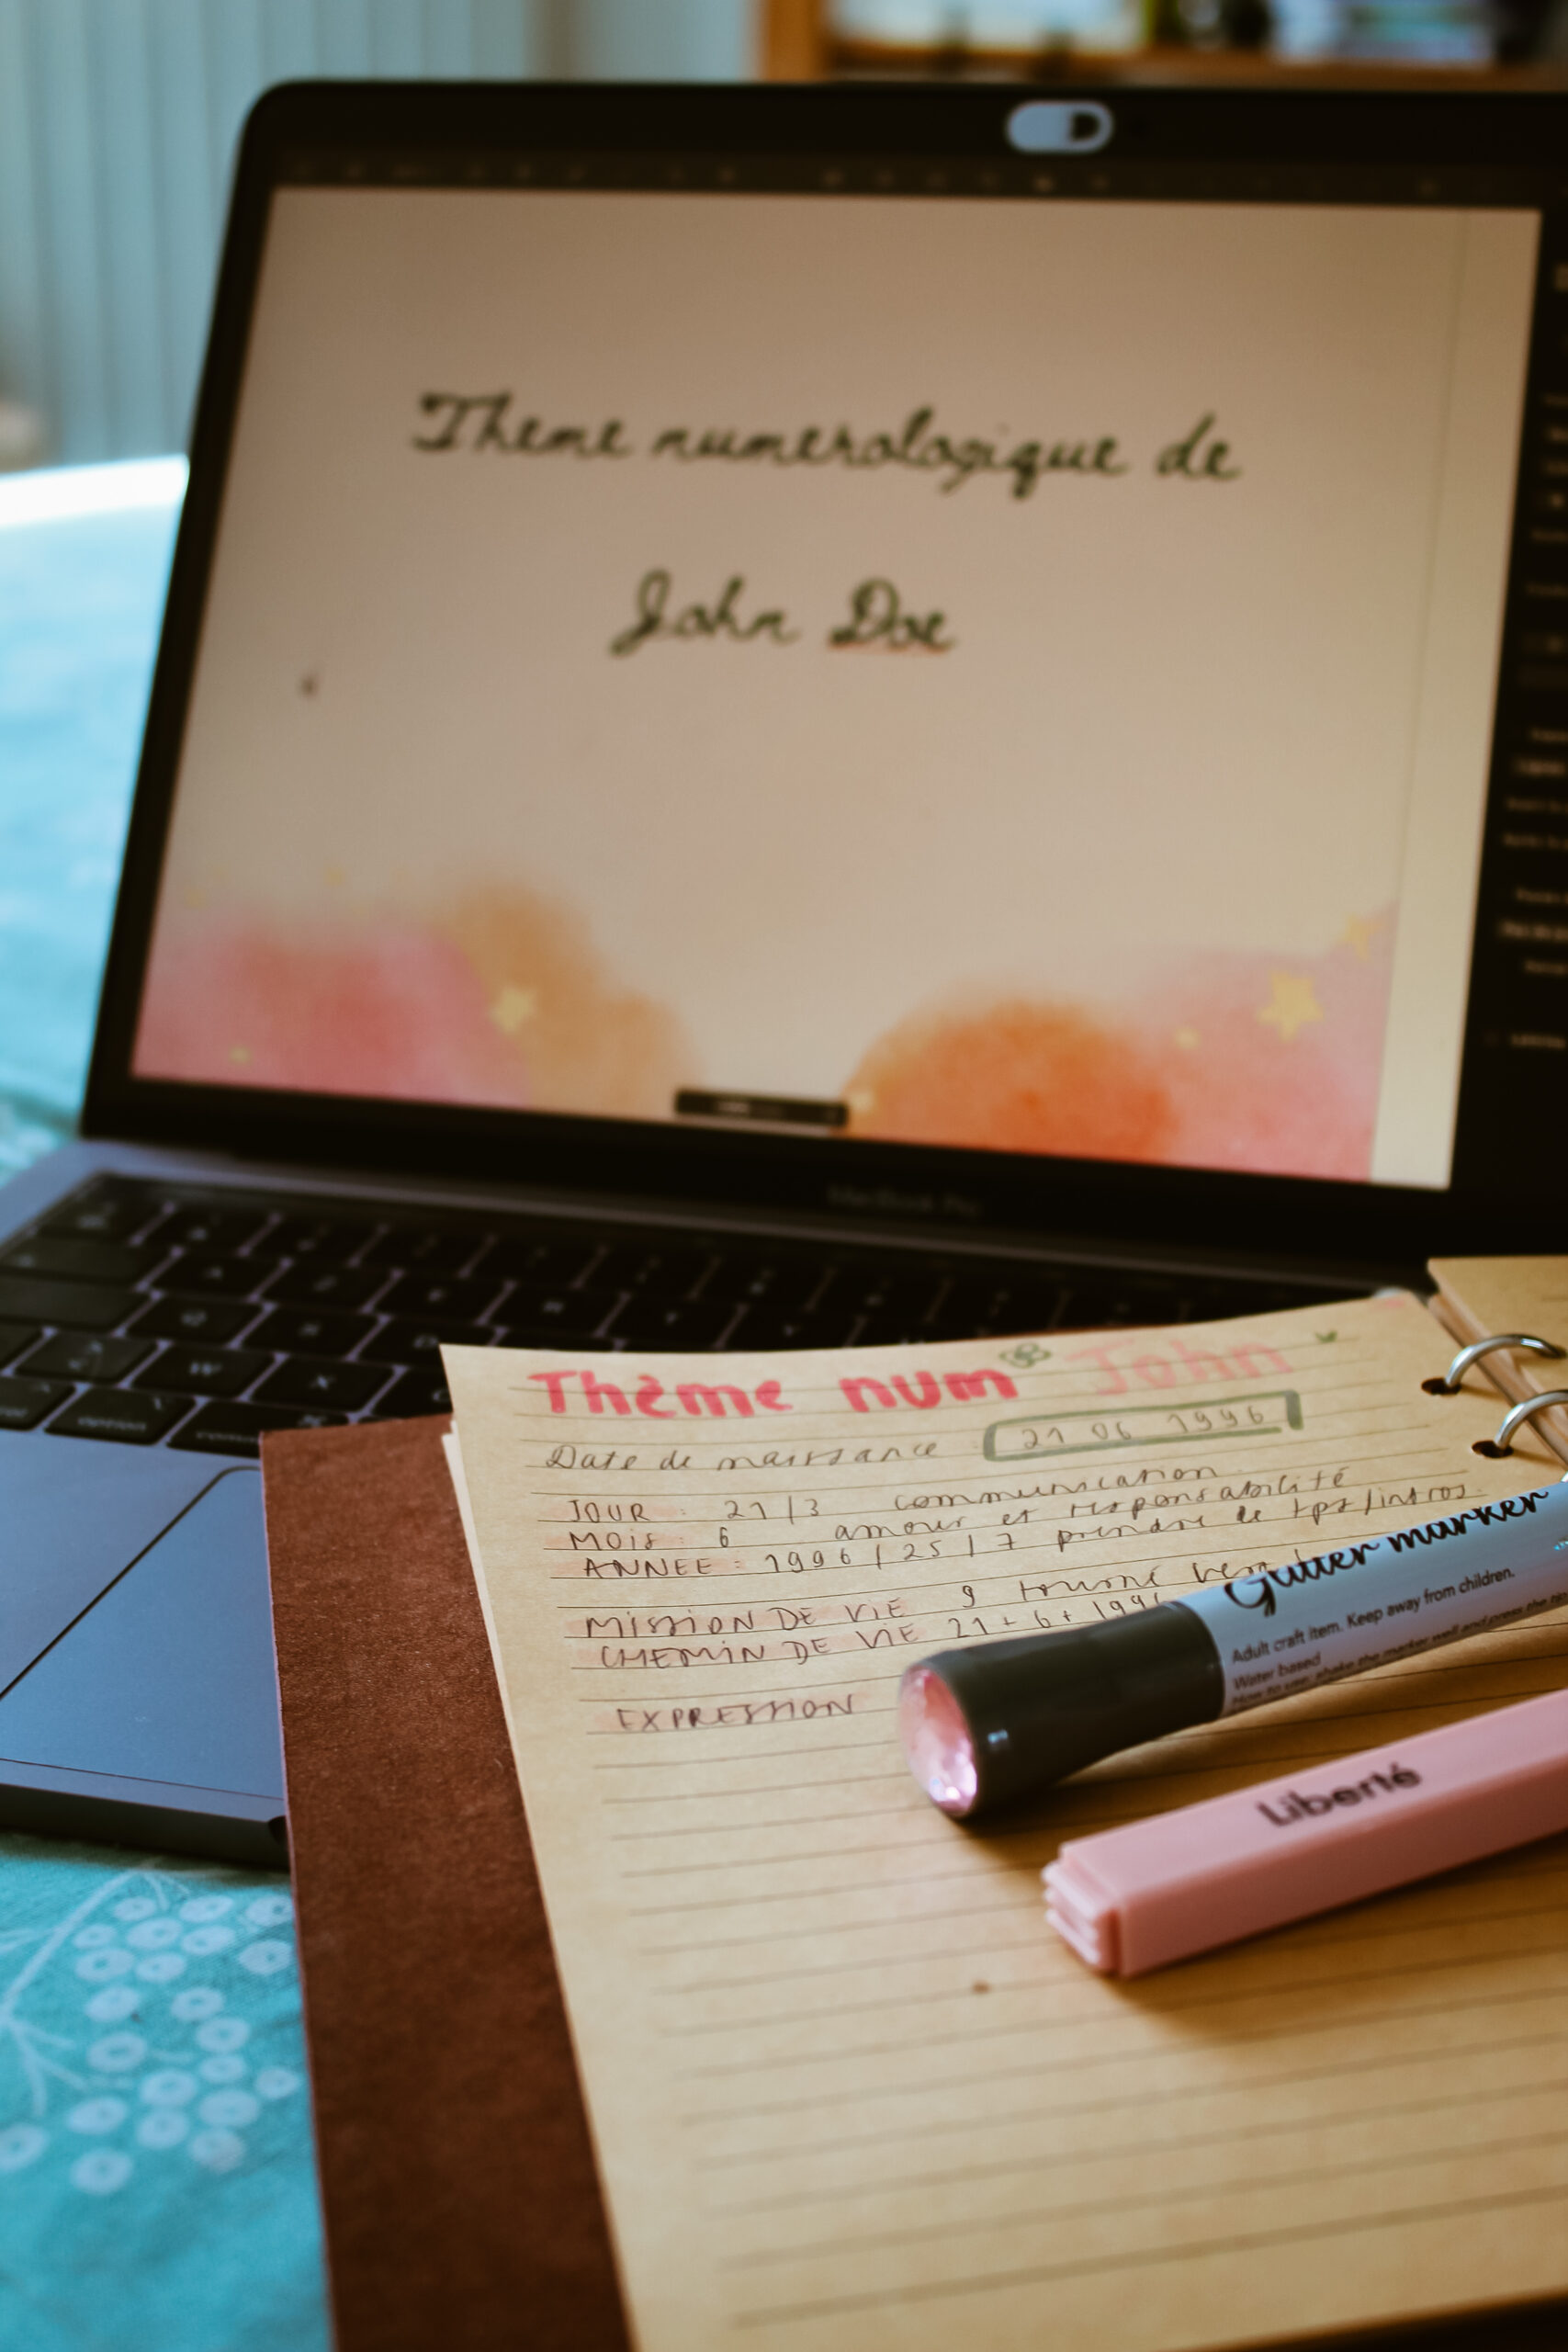 Thème numérologique de
John Doe
MacBook Pro
Thème num John
Date de naissance : 21 06 1996
JOUR : 21/3 communication
MOIS : 6 amour et responsabilité
ANNEE : 1996 / 25 / 7 prendre le tps/intros.
MISSION DE VIE 9 tourné vers
CHEMIN DE VIE 21 + 6 + 1996
EXPRESSION
Glitter marker
Adult craft item. Keep away from children.
Water based
How to use: shake the marker well and press the
Liberté
option